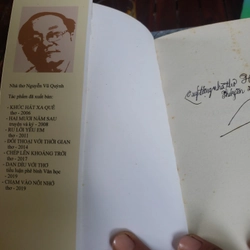 Nhà thơ Nguyễn Vũ Quỳnh
Tác phẩm đã xuất bản:
- KHÚC HÁT XA QUÊ
thơ - 2006
- HAI MƯƠI NĂM SAU
truyện và ký - 2008
- RU LỜI YÊU EM
thơ - 2011
- ĐỐI THOẠI VỚI THỜI GIAN
thơ - 2014
- CHÉP LÊN KHOẢNG TRỜI
thơ - 2017
- DAN DÍU VỚI THƠ
tiểu luận phê bình Văn học
- 2019
- CHẠM VÀO NỖI NHỚ
thơ - 2019